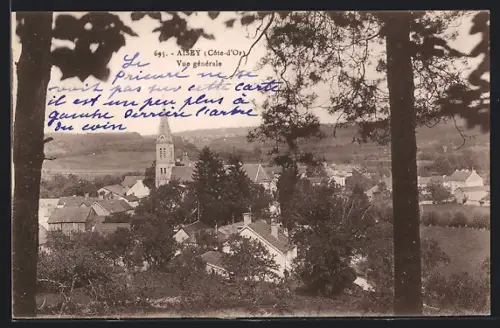 695. - AISEY (Côte-d'Or)
Vue générale
Le
Prieuré ne se
voit pas sur cette carte
il est un peu plus à
gauche Derrière l'arbre
Du coin